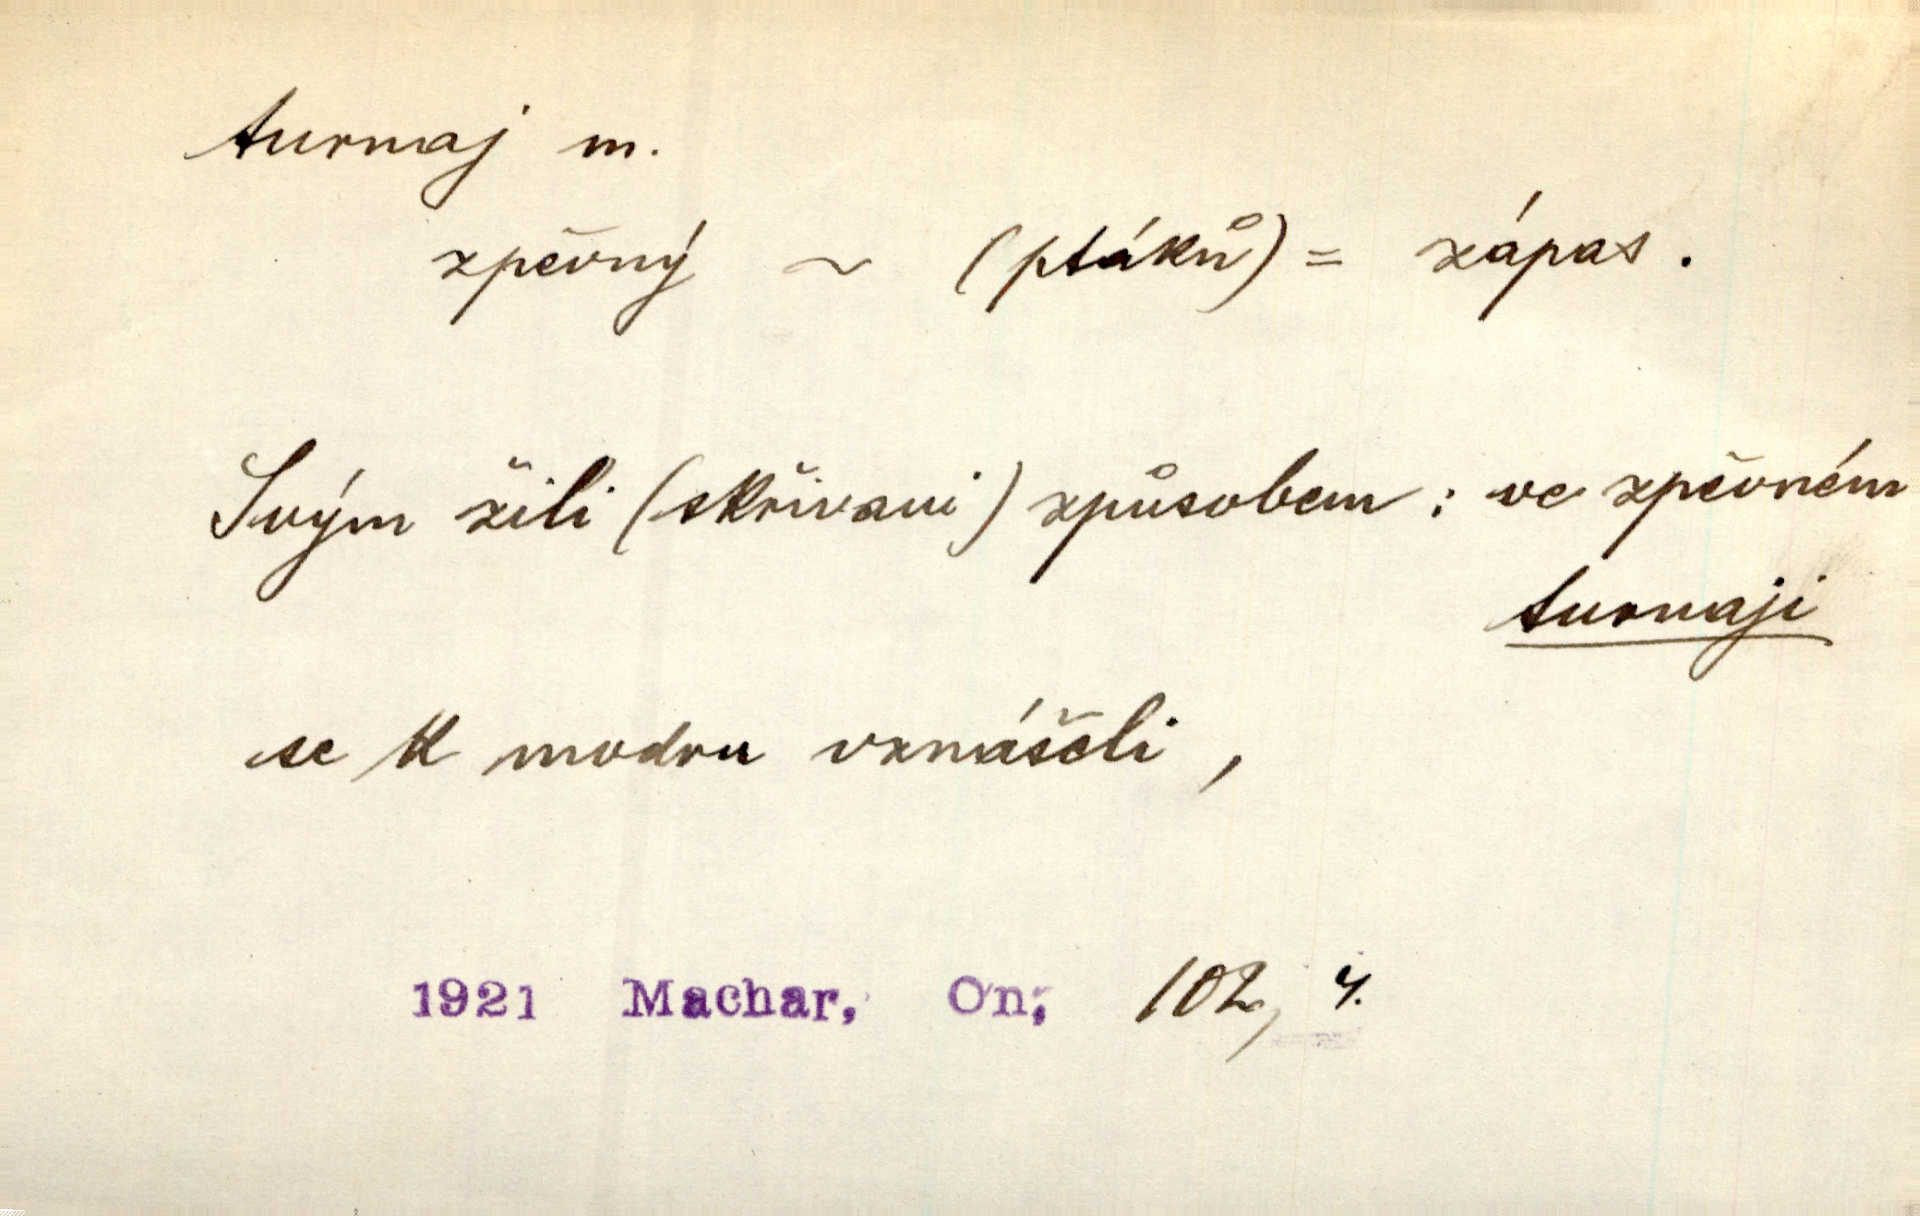 turnaj m.
zpěvný ~ (ptáků) = zápas.
Svým žili (skřivani) způsobem: ve zpěvném
turnaji
se k modru vznášeli,
1921 Machar, On, 102, 4.